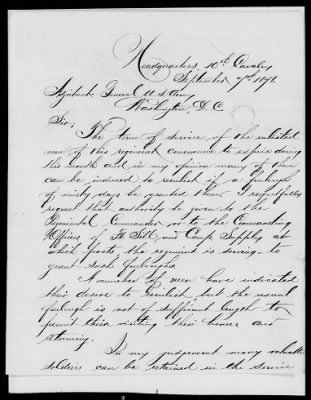 Headquarters, 10th Cavalry
September 7th 1871.
Adjutant General U.S. Army
Washington, D.C.
Sir:
The term of service of the enlisted
men of this regiment commence to expire during
this month and in my opinion many of them
can be induced to reenlist if a furlough
of ninety days be granted them. I respectfully
request that authority be given to the
Regimental Commander or to the Commanding
Officers of Ft. Sill, and Camp Supply at
which posts the regiment is serving to
grant such furloughs.
A number of men have indicated
their desire to reenlist but the usual
furlough is not of sufficient length to
permit their visiting their homes and
returning.
In my judgement many valuable
soldiers can be retained in the service